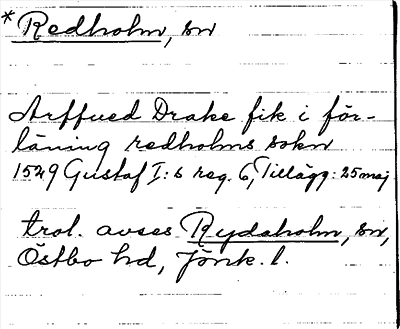 *Redholm, sn
Arffued Drake fik i för-
läning redholms sokn
1529 Gustaf I:s reg. 6, Tillägg: 25 maj
trol. avses Rydaholm, sn,
Östbo hd, Jönk. l.